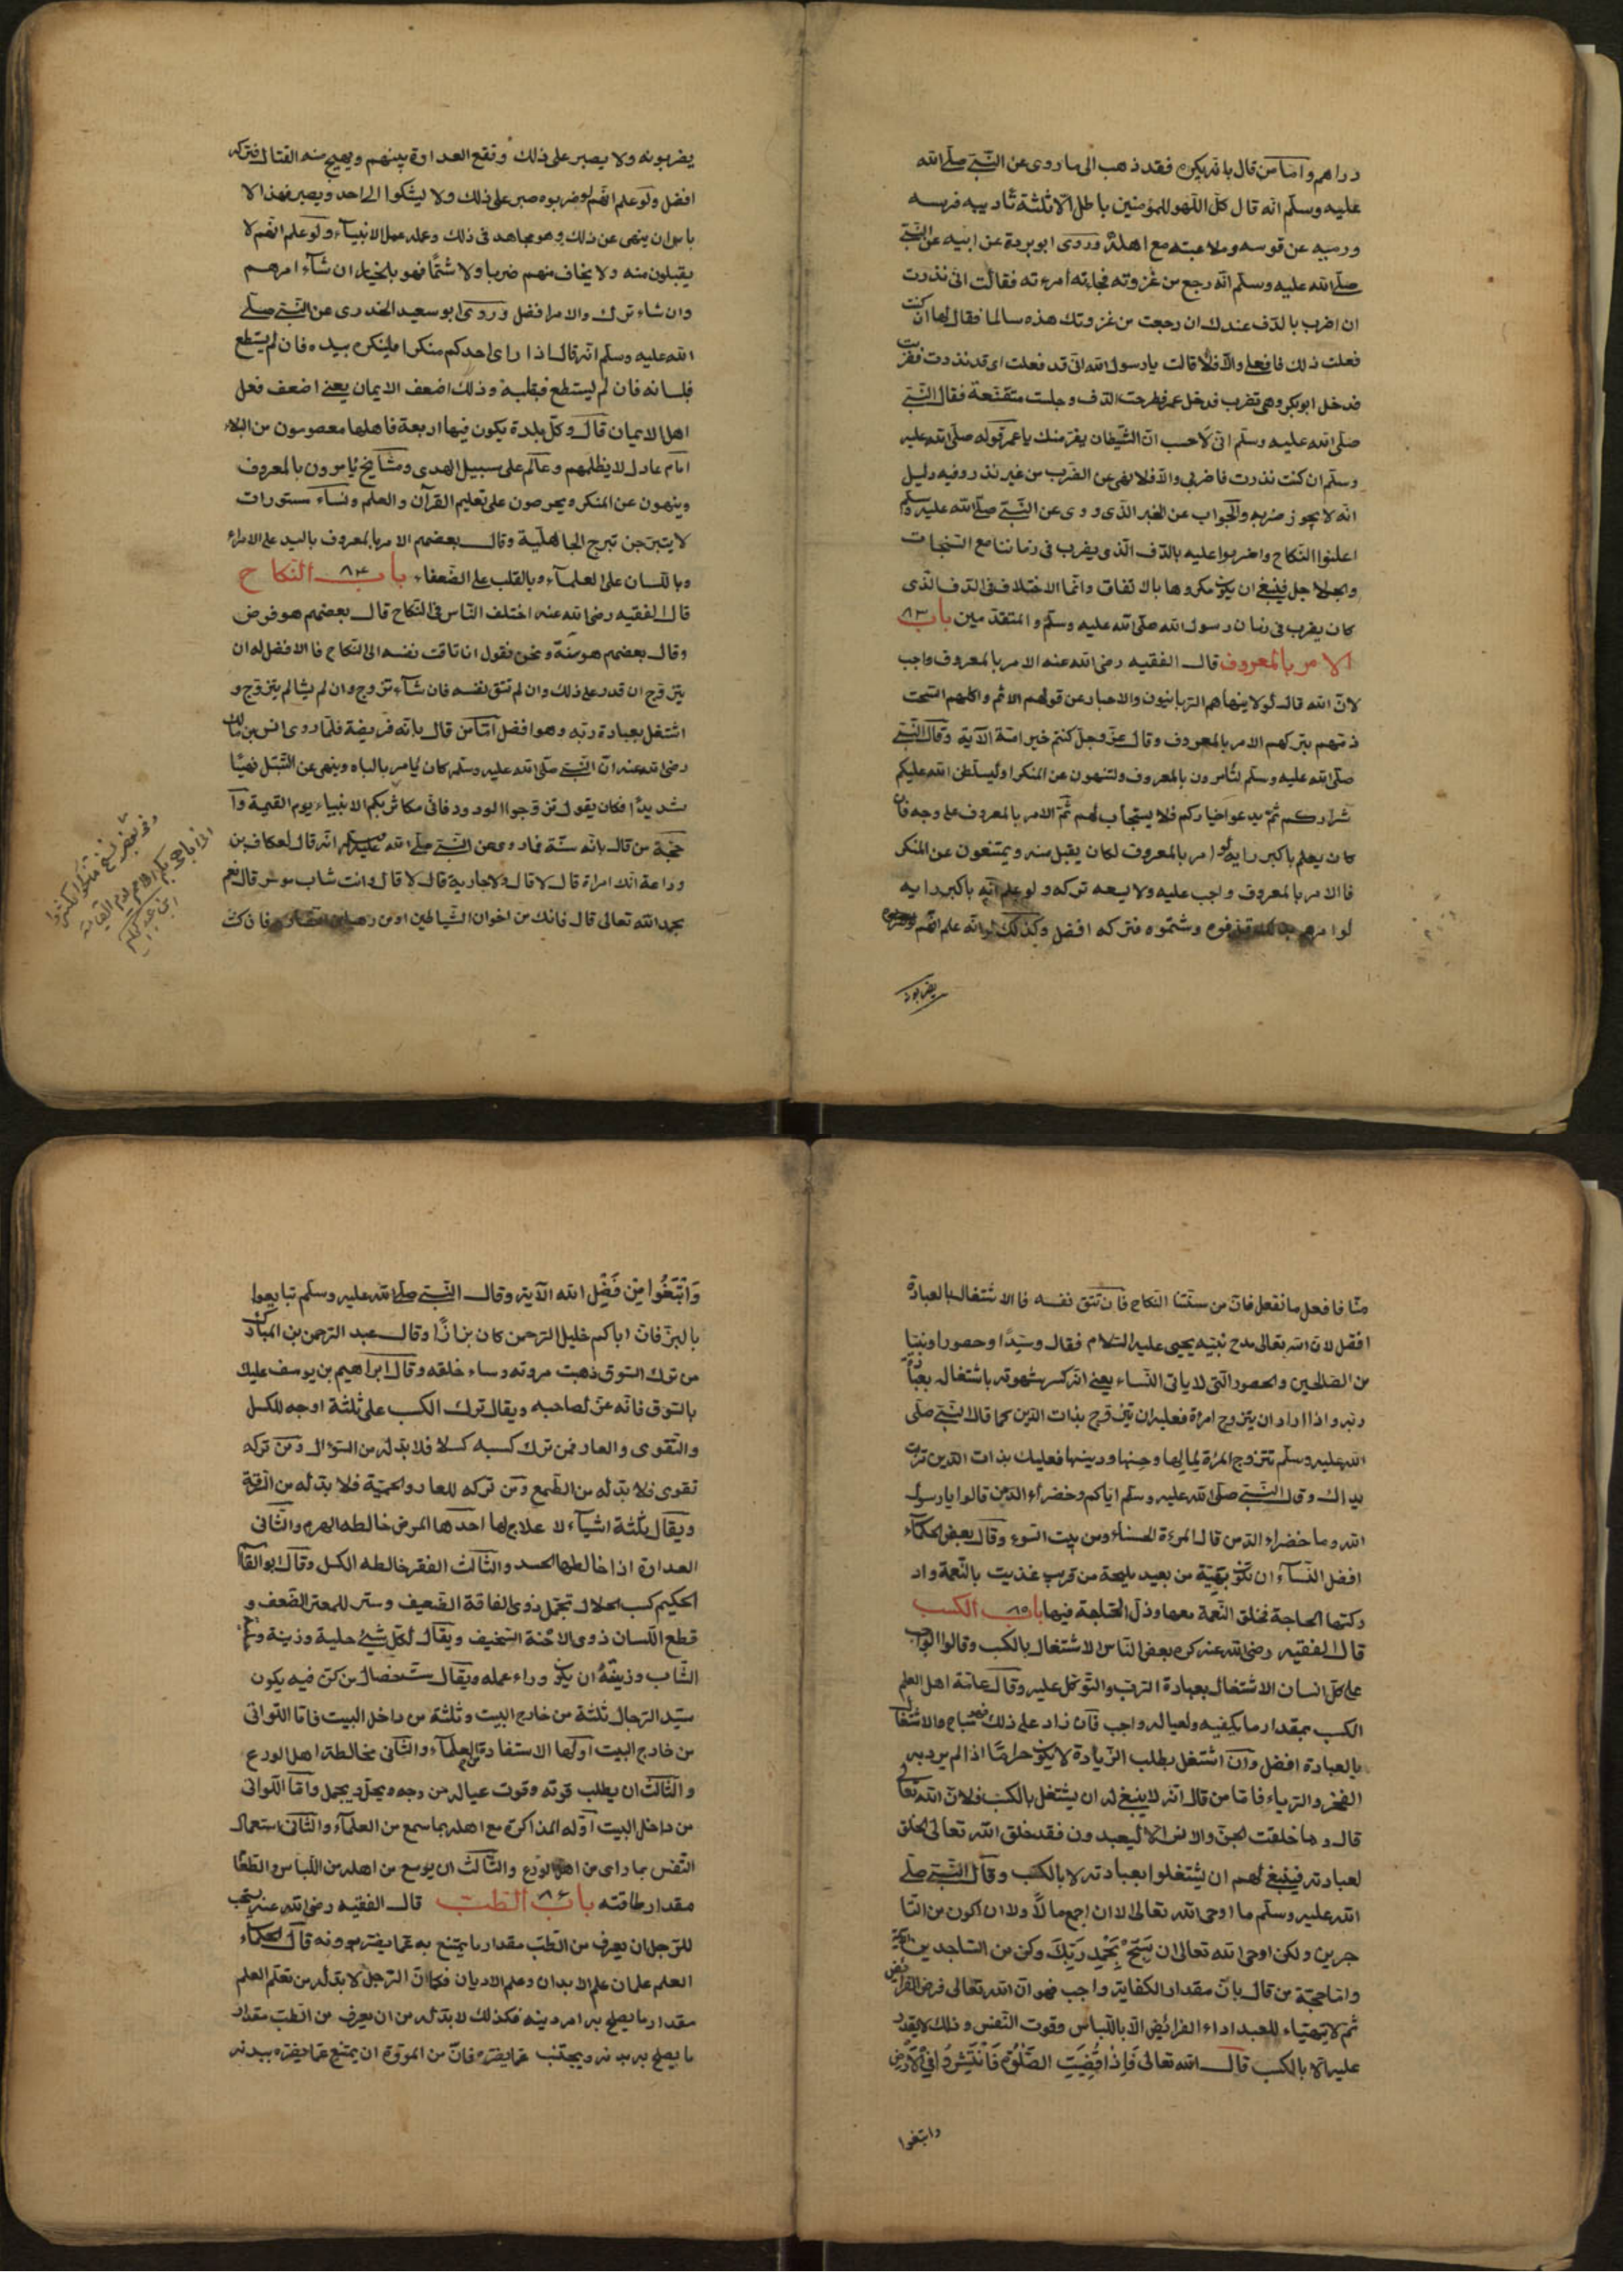 دراهم وامّا من قال بانّه يكره فقد ذهب الى ما روى عن النّبىّ صلّى الله
عليه وسلّم انّه قال كلّ اللّهو للمؤمنين باطل الّا ثلثة تأديبه فرسه
ورميه عن قوسه وملاعبته مع اهلهٔ وروى ابو بردة عن ابيه عن النّبىّ
صلّى الله عليه وسلّم انّه رجع من غزوته فجاءته امرءته فقالت انّى نذرت
ان اضرب بالدّف عندك ان رجعت من غزوتك هذه سالما فقال لها ان كنت
فعلت ذلك فافعلى والّا فلا قالت يا رسول الله انّى قد فعلت اى قد نذرت فضربت
فدخل ابو بكر وهى تضرب فدخل عمر فطرحت الدّف وجلست متقنّعة فقال النّبىّ
صلّى الله عليه وسلّم انّى لاحسب انّ الشّيطان يفرّ منك يا عمر قوله صلّى الله عليه
وسلّم ان كنت نذرت فاضربى والّا فلا نهى عن الضّرب من غير نذر وفيه دليل
انّه لا يجوز ضربه والجواب عن الخبر الّذى روى عن النّبىّ صلّى الله عليه وسلّم
اعلنوا النّكاح واضربوا عليه بالدّف الّذى يضرب فى زماننا مع الصّنجات
والجلاجل فينبغى ان يكون مكروها بالاتفاق وانّما الاختلاف فى الدّف الّذى
كان يضرب فى زمان رسول الله صلّى الله عليه وسلّم والمتقدّمين باب ٨٣
الامر بالمعروف قال الفقيه رضى الله عنه الامر بالمعروف واجب
لانّ الله قال لولا ينهاهم الرّبانيّون والاحبار عن قولهم الاثم واكلهم السّحت
ذمّهم بتركهم الامر بالمعروف وقال عزّ وجلّ كنتم خير امّة الآية وقال النّبىّ
صلّى الله عليه وسلّم لتأمرون بالمعروف ولتنهون عن المنكر او ليسلّطن الله عليكم
شراركم ثمّ يدعوا خياركم فلا يستجاب لهم ثمّ الامر بالمعروف على وجه فان
كان يعلم باكبر رايه لو امر بالمعروف لكان يقبل منه ويمتنعون عن المنكر
فالامر بالمعروف واجب عليه ولا يسعه تركه ولو علم انّه باكبر رايه
لو امرهم بذلك قذفوه وشتموه فتركه افضل وكذلك لو انّه علم انّهم
يضربونه
يضربونه ولا يصبر على ذلك وتقع العداوة بينهم ويهيج منه القتال فتركه
افضل ولو علم انّهم لو ضربوه صبر على ذلك ولا يشكوا الى احد ويصبر فهذا لا
باس ان ينهى عن ذلك وهو مجاهد فى ذلك وعمله عمل الانبيآء ولو علم انّهم لا
يقبلون منه ولا يخاف منهم ضربا ولا شتمًا فهو بالخيار ان شآء امرهم
وان شاء ترك والامر افضل وروى ابو سعيد الخدرى عن النّبىّ صلّى
الله عليه وسلّم انّه قال اذا راى احدكم منكرا فلينكره بيده فان لم يستطع
فلسانه فان لم ليستطع فبقلبه وذلك اضعف الايمان يعنى اضعف فعل
اهل الايمان قال وكلّ بلدة يكون فيها اربعة فاهلها معصومون من البلاء
امام عادل لا يظلمهم وعالم على سبيل الهدى ومشايخ يأمرون بالمعروف
وينهون عن المنكر ويحرصون على تعليم القرآن والعلم ونسآء مستورات
لا يتبرّجن تبرج الجاهليّة وقال بعضهم الامر بالمعروف باليد على الامراء
وباللّسان على العلمآء وبالقلب على الضّعفاء باب ٨٤ النّكاح
قال الفقيه رضى الله عنه اختلف النّاس فى النّكاح قال بعضهم هو فرض
وقال بعضهم هو سنّة ونحن نقول ان تاقت نفسه الى النّكاح فالافضل له ان
يتزوّج ان قدر على ذلك وان لم تتق نفسه فان شآء تزوّج وان لم يشا لم يتزوّج و
اشتغل بعبادة ربّه وهو افضل امّا من قال بانّه فريضة فلما روى انس بن مالك
رضى الله عنه انّ النّبىّ صلّى الله عليه وسلّم كان يأمر بالباه وينهى عن التّبتّل نهيًا
شديدًا فكان يقول تزوّجوا الودود فانّى مكاثر بكم الانبياء يوم القيمة وامّا
حجّة من قال بانّه سنّة فما روى عن النّبىّ صلّى الله عليه وسلّم انّه قال لعكاف بن
وداعة الك امراة قال لا قال ولا جارية قال لا قال وانت شاب موسر قال نعم
بحمد الله تعالى قال فانك من اخوان الشّياطين او من رهبان النصارى فان كنت
وفى بعض نسخ
منّا فافعل ما نفعل فانّ من سنّتنا النّكاح فان لم تتق نفسه فالاشتغال بالعبادة
افضل لانّ الله تعالى مدح نبيّه يحيى عليه السّلام فقال وسيّدًا وحصورا ونبيّا
من الصّالحين والحصور الّتى لا ياتى النّساء يعنى انّه كسر شهوته باشتغاله بعبادة
ربّه واذا اراد ان يتزوج امرأة فعليه ان يتزوّج بذات الدّين كما قال النّبىّ صلّى
الله عليه وسلّم تتزوج المرءة لمالها وحسنها ودينها فعليك بذات الدّين تربت
يداك وقال النّبىّ صلّى الله عليه وسلّم ايّاكم وخضراء الدّمن قالوا يا رسول
الله وما خضراء الدّمن قال المرءة الحسناء ومن بيت السّوء وقال بعض الحكمآء
افضل النّسآء ان تكون بهيّة من بعيد مليحة من قريب غذيت بالنّعمة واد
ركتها الحاجة فخلق النّعمة معها وذلّ الحاجة فيها باب ٨٥ الكسب
قال الفقيه رضى الله عنه كره بعض النّاس الاشتغال بالكسب وقالوا الواجب
على كلّ انسان الاشتغال بعبادة الرّب والتّوكّل عليه وقال عامّة اهل العلم
الكسب بمقدار ما يكفيه ولعياله واجب فان زاد على ذلك فهو مباح والاشتغال
بالعبادة افضل وان اشتغل بطلب الزّيادة لا يكون حرامًا اذا لم يرد به
الفخر والرّياء فامّا من قال انّه لا ينبغى له ان يشتغل بالكسب فلانّ الله تعالى
قال وما خلقت الجنّ والانس الّا ليعبدون فقد خلق الله تعالى الخلق
لعبادته فينبغى لهم ان يشتغلوا بعبادته لا بالكسب وقال النّبىّ صلّى
الله عليه وسلّم ما اوحى الله تعالى الا ان اجمع مالًا ولا ان اكون من التّا
جرين ولكن اوحى الله تعالى ان سَبِّحْ بِحَمْدِ رَبِّكَ وكن من السّاجدين
وامّا حجّة من قال بانّ مقدار الكفاية واجب فهو انّ الله تعالى فرض الفرائض
ثمّ لا يتهيّاء للعبد اداء الفرائض الّا باللّباس وقوت النّفس وذلك لا يقدر
عليه الّا بالكسب قال الله تعالى فَاِذَا قُضِيَتِ الصَّلٰوةُ فَانْتَشِرُوا فِى الْاَرْضِ
وابتغوا
وَابْتَغُوا مِنْ فَضْلِ الله الآية وقال النّبىّ صلّى الله عليه وسلّم تبايعوا
بالبزّ فانّ اباكم خليل الرّحمن كان بزّازًا وقال عبد الرّحمن بن المبارك
من ترك السّوق ذهبت مروته وساء خلقه وقال ابراهيم بن يوسف عليك
بالسّوق فانّه عزّ لصاحبه ويقال ترك الكسب على ثلثة اوجه للكسل
والتّقوى والعار فمن ترك كسبه كسلا فلا بدّ له من السّؤال ومن تركه
تقوى فلا بدّ له من الطّمع ومن تركه للعار والحميّة فلا بدّ له من السّرقة
ويقال ثلثة اشيآء لا علاج لها احدها المرض خالطه الهرم والثّانى
العداوة اذا خالطها الحسد والثّالث الفقر خالطه الكسل وقال ابو القاسم
الحكيم كسب الحلال تجمّل ذوى الفاقة الضّعيف وستر للمعتر الضّعف و
قطع اللّسان ذوى الاحنة السّخيف ويقال لكلّ شىء حلية وزينة
الشّاب وزينته ان يكون وراء عمله ويقال ستّ خصال من كنّ فيه يكون
سيّد الرّجال ثلثة من خارج البيت وثلثة من داخل البيت فامّا اللّواتى
من خارج البيت اولها الاستفادة من العلمآء والثّانى مخالطة اهل الورع
والثّالث ان يطلب قوته وقوت عياله من وجه ويحلّ ويجمل وامّا اللّواتى
من داخل البيت اوّله المذاكرة مع اهله بما سمع من العلمآء والثّانى استعمال
النّفس بما راى من اهل الورع والثّالث ان يوسع من اهله من اللّباس والطّعام
مقدار طاقته باب ٨٦ الطّب قال الفقيه رضى الله عنه يستحب
للرّجل ان يعرف من الطّبّ مقدار ما يمتنع به عمّا يضرّ ببدنه قال الحكمآء
العلم علمان علم الابدان وعلم الاديان فكما انّ الرّجل لا بدّ له من تعلّم العلم
مقدار ما يصلح به امر دينه فكذلك لا بدّ له من ان يعرف من الطّبّ مقدار
ما يصلح به بدنه ويجتنب عمّا يضرّه فانّ من المروّة ان يمتنع عمّا يضرّه ببدنه